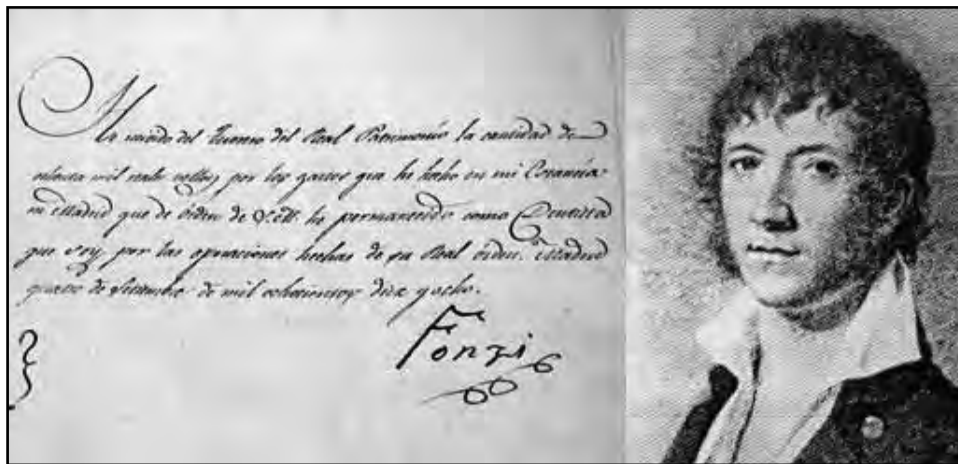 He recivido del Tesorero del Real Patrimonio la cantidad de
mil reales vellon por los gastos que he hecho en mi Estancia
en Madrid que de órden de S.M. he permanecido como Dentista
que soy, por las operaciones hechas de su Real órden. Madrid
quatro de Setiembre de mil ochocientos diez y ocho.
Fonzi